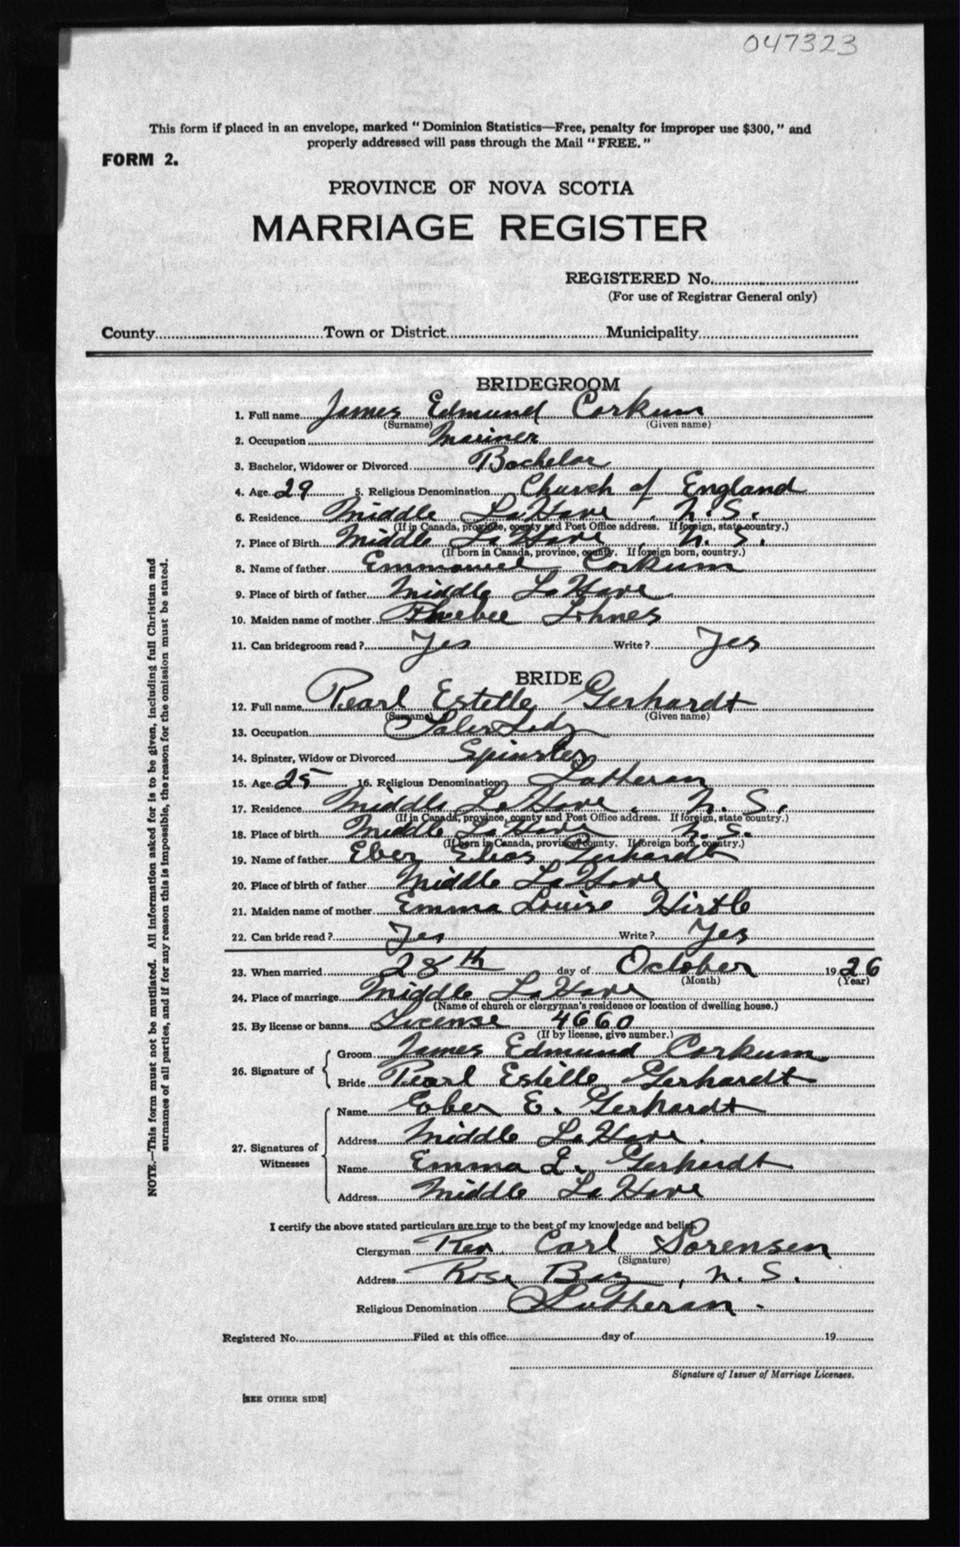 047323
This form if placed in an envelope, marked "Dominion Statistics—Free, penalty for improper use $300," and
properly addressed will pass through the Mail "FREE."
FORM 2.
PROVINCE OF NOVA SCOTIA
MARRIAGE REGISTER
REGISTERED No.
(For use of Registrar General only)
County Town or District Municipality
BRIDEGROOM
1. Full name James Edmund Corkum
(Surname) (Given name)
2. Occupation Mariner
3. Bachelor, Widower or Divorced Bachelor
4. Age 29 5. Religious Denomination Church of England
6. Residence Middle LaHave, N.S.
(If in Canada, province, county and Post Office address. If foreign, state country.)
7. Place of Birth Middle LaHave, N.S.
(If born in Canada, province, county. If foreign born, country.)
8. Name of father Emmanuel Corkum
9. Place of birth of father Middle LaHave
10. Maiden name of mother Phoebee Lohnes
11. Can bridegroom read? Yes Write? Yes
BRIDE
12. Full name Pearl Estelle Gerhardt
(Surname) (Given name)
13. Occupation Sales Lady
14. Spinster, Widow or Divorced Spinster
15. Age 25 16. Religious Denomination Lutheran
17. Residence Middle LaHave, N.S.
(If in Canada, province, county and Post Office address. If foreign, state country.)
18. Place of birth Middle LaHave N.S.
(If born in Canada, province, county. If foreign born, country.)
19. Name of father Eber Elias Gerhardt
20. Place of birth of father Middle LaHave
21. Maiden name of mother Emma Louise Hirtle
22. Can bride read? Yes Write? Yes
23. When married 28th day of October 1926
(Month) (Year)
24. Place of marriage Middle LaHave
(Name of church or clergyman's residence or location of dwelling house.)
25. By license or banns License 4660
(If by license, give number.)
26. Signature of Groom James Edmund Corkum
Bride Pearl Estelle Gerhardt
27. Signatures of Witnesses
Name Eber E. Gerhardt
Address Middle LaHave.
Name Emma L. Gerhardt
Address Middle LaHave
I certify the above stated particulars are true to the best of my knowledge and belief.
Clergyman Rev. Carl Sorensen
(Signature)
Address Rose Bay, N.S.
Religious Denomination Lutheran.
Registered No. Filed at this office day of 19
Signature of Issuer of Marriage Licenses.
[SEE OTHER SIDE]
NOTE.—This form must not be mutilated. All information asked for is to be given, including full Christian and
surnames of all parties, and if for any reason this is impossible, the reason for the omission must be stated.